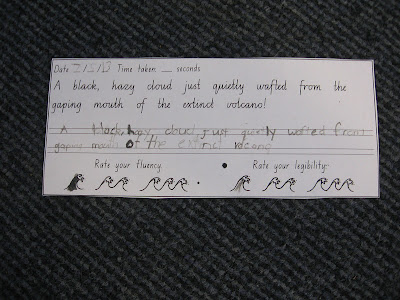 Date 2/5/13 Time taken: __ seconds
A black, hazy cloud just quietly wafted from the
gaping mouth of the extinct volcano!
A black, hazy cloud just quietly wafted from
gaping mouth of the extinct
Rate your fluency. Rate your legibility: